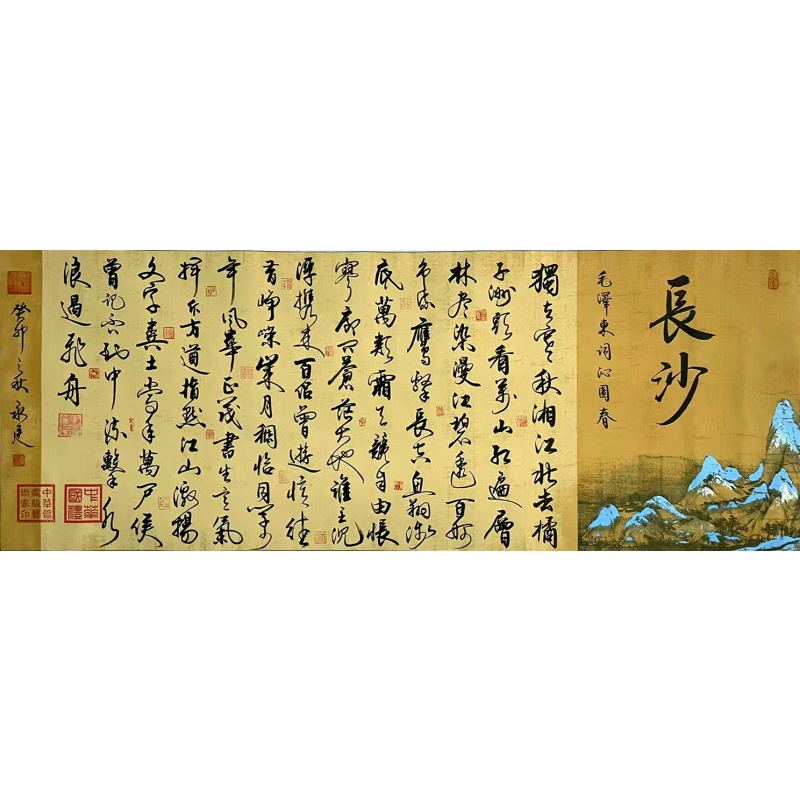 長沙
毛澤東詞沁園春
獨立寒秋湘江北去橘
子洲頭看萬山紅遍層
林尽染漫江碧透百舸
争流鷹擊長空魚翔淺
底萬類霜天競自由悵
寥廓問蒼茫大地誰主沉
浮攜來百侣曾遊憶往
昔崢嶸歲月稠恰同学少
年風華正茂書生意氣
揮斥方遒指點江山激揚
文字糞土當年萬戶侯
曾記否到中流擊水
浪遏飛舟
癸卯之秋
中華國禮